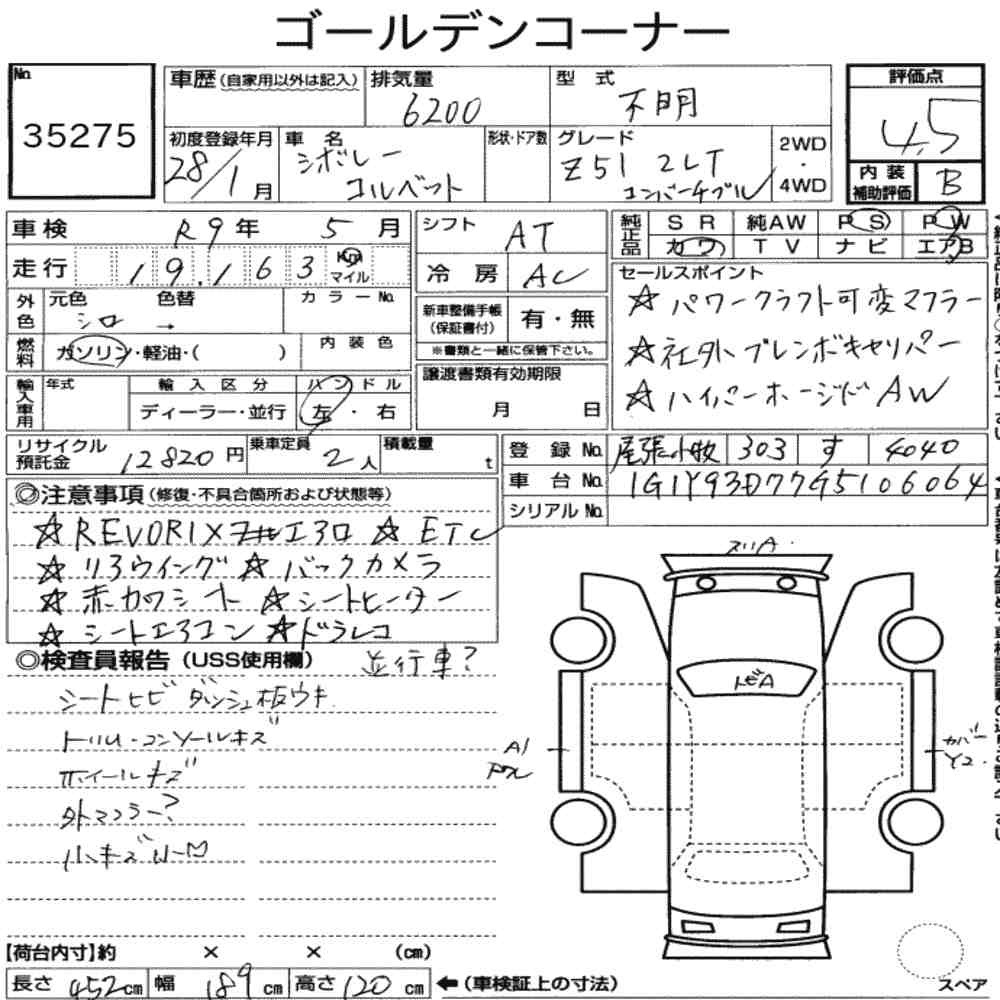 ゴールデンコーナー
No.
35275
車歴(自家用以外は記入)
排気量
6200
型式
不明
評価点
4.5
初度登録年月
28/1月
車名
シボレー
コルベット
形状・ドア数
グレード
Z51 2LT
コンバーチブル
2WD
・
4WD
内装
補助評価
B
車検 R9年 5月
シフト AT
純正品
SR 純AW PS PW
カワ TV ナビ エアB
走行 19,163 Km
マイル
冷房 AC
セールスポイント
☆パワークラフト可変マフラー
☆社外ブレンボキャリパー
☆ハイパーホージドAW
外色
元色 色替 カラーNo.
シロ →
新車整備手帳
(保証書付)
有・無
※書類と一緒に保管下さい。
燃料
ガソリン・軽油・( )
内装色
輸入車用
年式
輸入区分
ハンドル
ディーラー・並行
左・右
譲渡書類有効期限
月 日
リサイクル
預託金
12820円
乗車定員
2人
積載量
t
登録No. 尾張小牧 303 す 4040
車台No. 1G1Y93D77G5106064
シリアルNo.
◎注意事項(修復・不具合箇所および状態等)
☆REVORIX エアロ ☆ETC
☆リアウイング ☆バックカメラ
☆赤カワシート ☆シートヒーター
☆シートエアコン ☆ドラレコ
◎検査員報告(USS使用欄) 並行車?
シートヒビ ダッシュ板ウキ
トリム・コンソールキズ
ホイールキズ
外マフラー?
スリA
トビA
A1
カバー
Y2
【荷台内寸】約 × × (cm)
長さ 452cm 幅 189cm 高さ 120cm
←(車検証上の寸法)
スペア